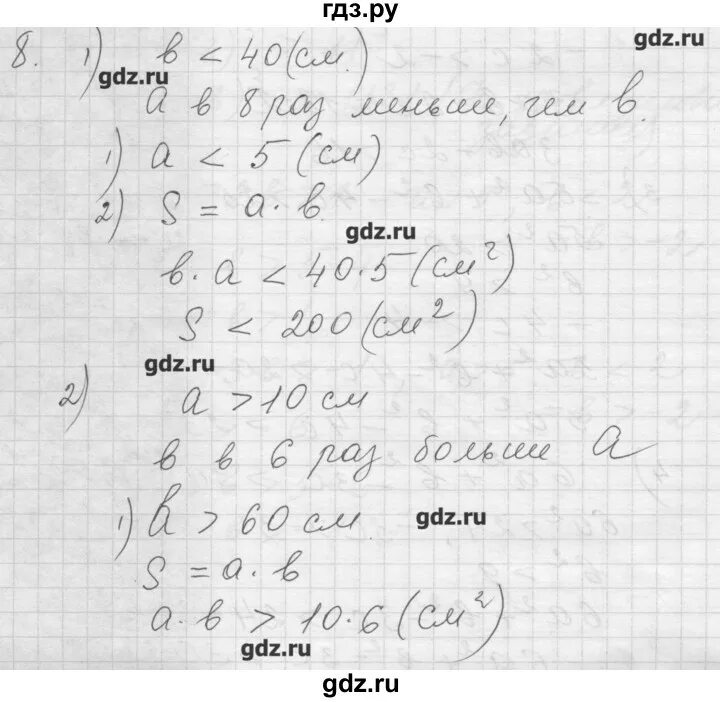 гдз.ру
8. 1) в < 40 (см.)
gdz.ru
gdz.ru
а в 8 раз меньше, чем в.
1) а < 5 (см)
2) S = а · в.
gdz.ru
в · а < 40 · 5 (см²)
S < 200 (см²)
gdz.ru
2) а > 10 см
в в 6 раз больше а
1) в > 60 см
gdz.ru
S = а · в
а · в > 10 · 6 (см²)
gdz.ru
gdz.ru